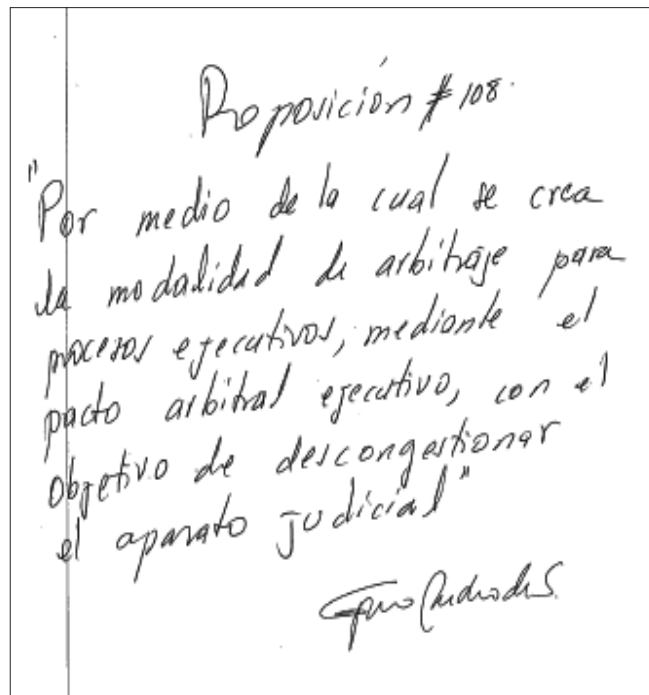 Proposición # 108.
"Por medio de la cual se crea
la modalidad de arbitraje para
procesos ejecutivos, mediante el
pacto arbitral ejecutivo, con el
objetivo de descongestionar
el aparato judicial"